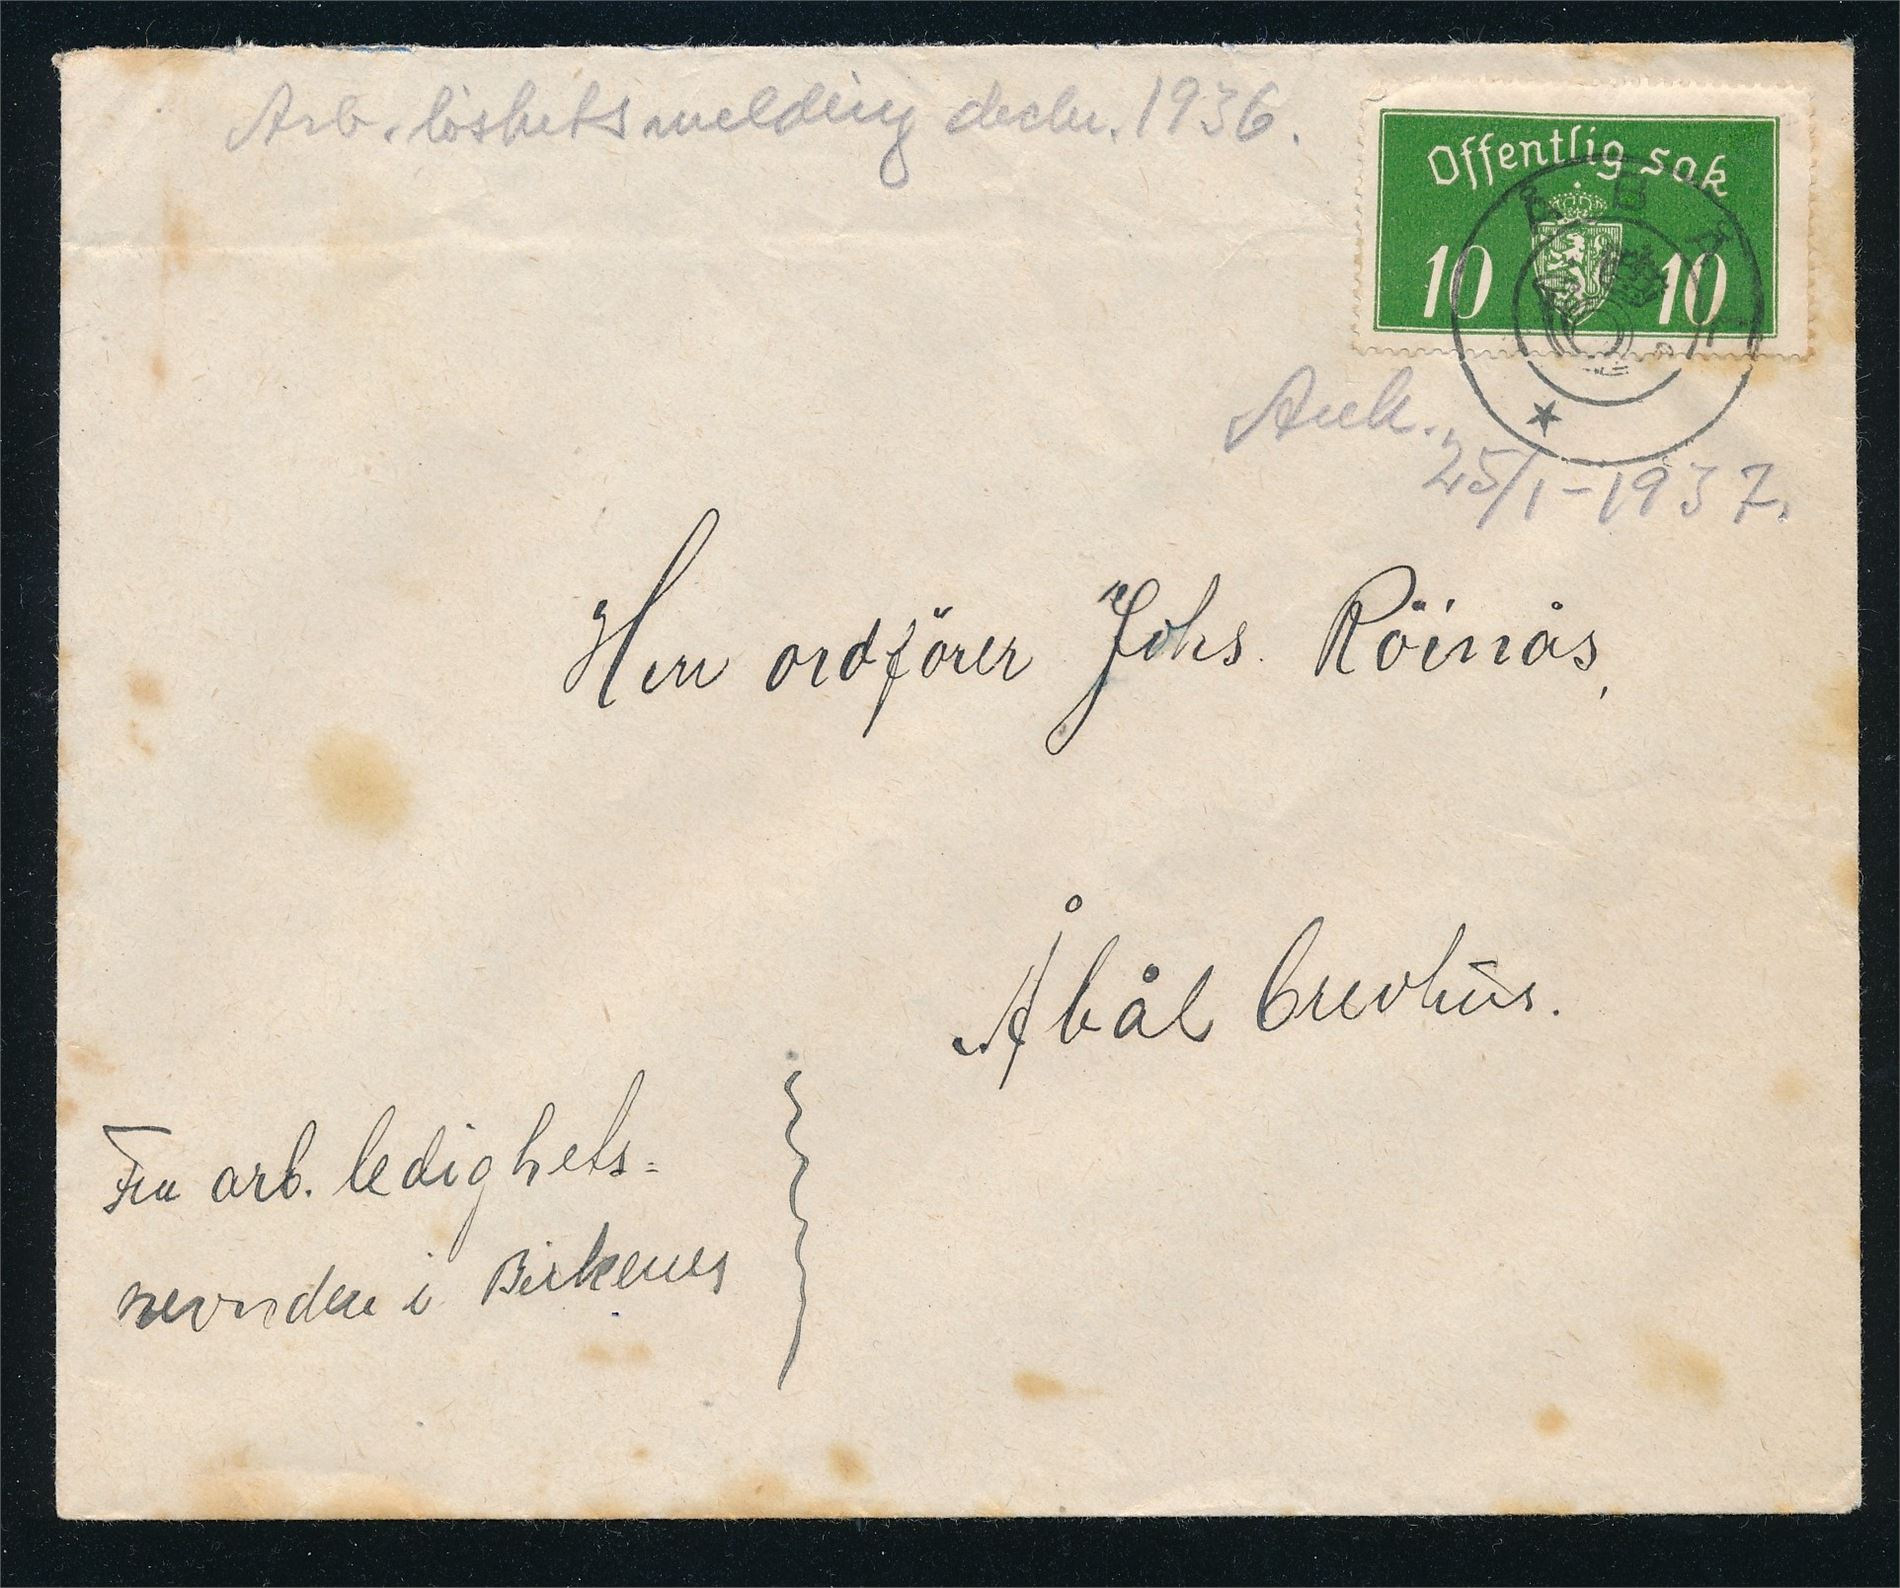 Arb. löshetsmelding decbr. 1936.
Offentlig sak
10 10
ÅBÅL
Ank.
25/1-1937.
Herr ordförer Johs. Röinås,
Åbål brevhus.
Fra arb. ledighets=
nevnden i Birkenes